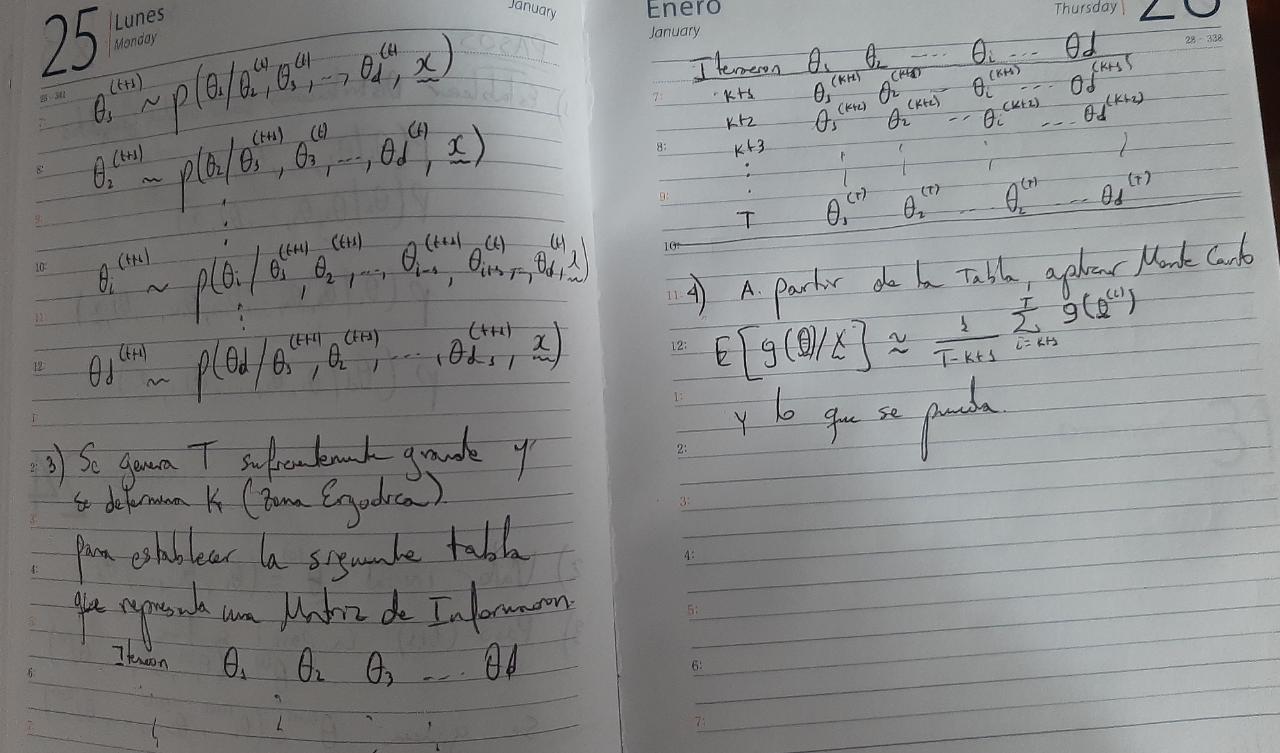 25 Lunes
Monday
January
θ₁^(t+1) ~ p(θ₁/θ₂^(t), θ₃^(t), ..., θd^(t), x)
7:
θ₂^(t+1) ~ p(θ₂/θ₁^(t+1), θ₃^(t), ..., θd^(t), x)
8:
⋮
9:
θi^(t+1) ~ p(θi/θ₁^(t+1), θ₂^(t+1), ..., θi-1^(t+1), θi+1^(t), ..., θd^(t), x)
10:
⋮
11:
θd^(t+1) ~ p(θd/θ₁^(t+1), θ₂^(t+1), ..., θd-1^(t+1), x)
12:
1:
2: 3) Se genera T suficientemente grande y
se determina K (Zona Ergodica)
3:
para establecer la siguiente tabla
4:
que representa una Matriz de Informacion.
5:
Iteracion θ₁ θ₂ θ₃ ... θd
6:
7:
Enero
January
Thursday
28 - 338
Iteracion θ₁ θ₂ ... θi ... θd
7: K+1 θ₁^(K+1) θ₂^(K+1) ... θi^(K+1) ... θd^(K+1)
K+2 θ₁^(K+2) θ₂^(K+2) ... θi^(K+2) ... θd^(K+2)
8: K+3
⋮
9:
T θ₁^(T) θ₂^(T) ... θ₂^(T) ... θd^(T)
10:
11: 4) A partir de la Tabla, aplicar Monte Carlo
12: E[g(θ)/X] ≈ 1/(T-K+1) Σ_{i=K+1}^{T} g(θ^(i))
1:
y lo que se pueda.
2:
3:
4:
5:
6:
7: